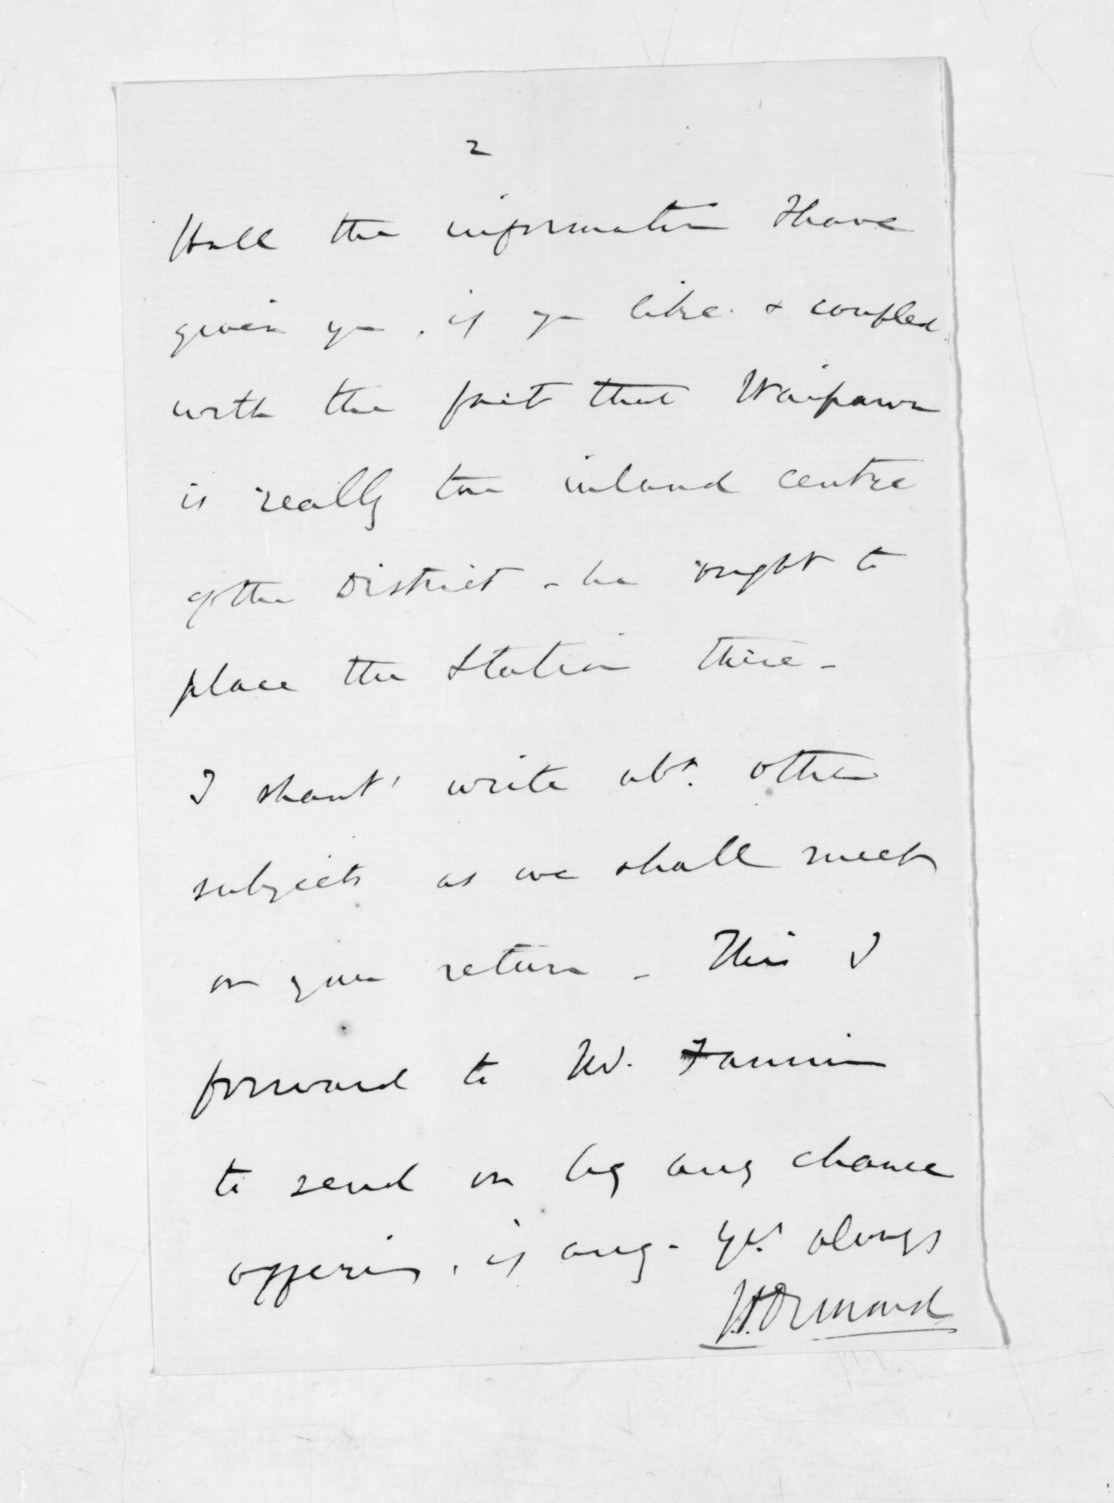 2
Hall the information I have
given you, if you like. & coupled
with the fact that Waipawa
is really the inland centre
of the District - he ought to
place the Station there -
I shant' write abt. other
subjects as we shall meet
on your return - This I
forward to Mr. Fannin
to send on by any chance
offering, if any - Yrs. always
J.D. Ormond